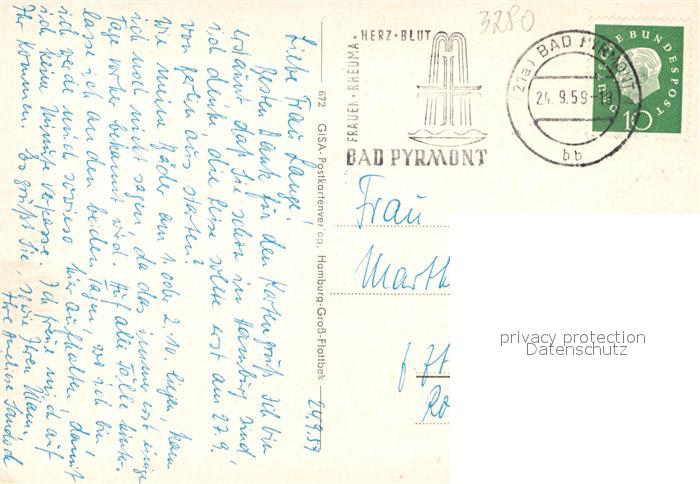 24.9.59
Liebe Frau Lange!
Besten Dank für den Kartengruß. Ich bin
erstaunt, daß Sie schon in Hamburg sind,
ich dachte, die Reise sollte erst am 27.9.
von Berlin aus starten?
Wie meine Bäder am 1. oder 2.10. liegen, kann
ich noch nicht sagen, da das immer erst einige
Tage vorher bekannt wird. Auf alle Fälle hinter-
lasse ich an den beiden Tagen, wo ich bin
ich werde mich sowieso hier aufhalten, damit
ich keine Minute verpasse. Ich freue mich auf
Ihr Kommen. Es grüßt Sie, sowie Ihren Mann,
Ihre
672 GISA-Postkartenverlag, Hamburg-Groß-Flottbek
3280
HERZ·BLUT
FRAUEN·RHEUMA
BAD PYRMONT
(21a) BAD PYRMONT
24.9.59
bb
DEUTSCHE BUNDESPOST
10
Frau
privacy protection
Datenschutz